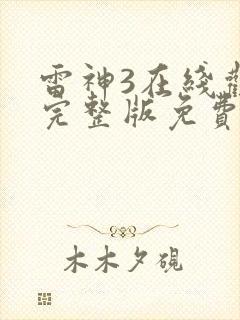 雷神3在綫觀
完整版免費
木木夕硯